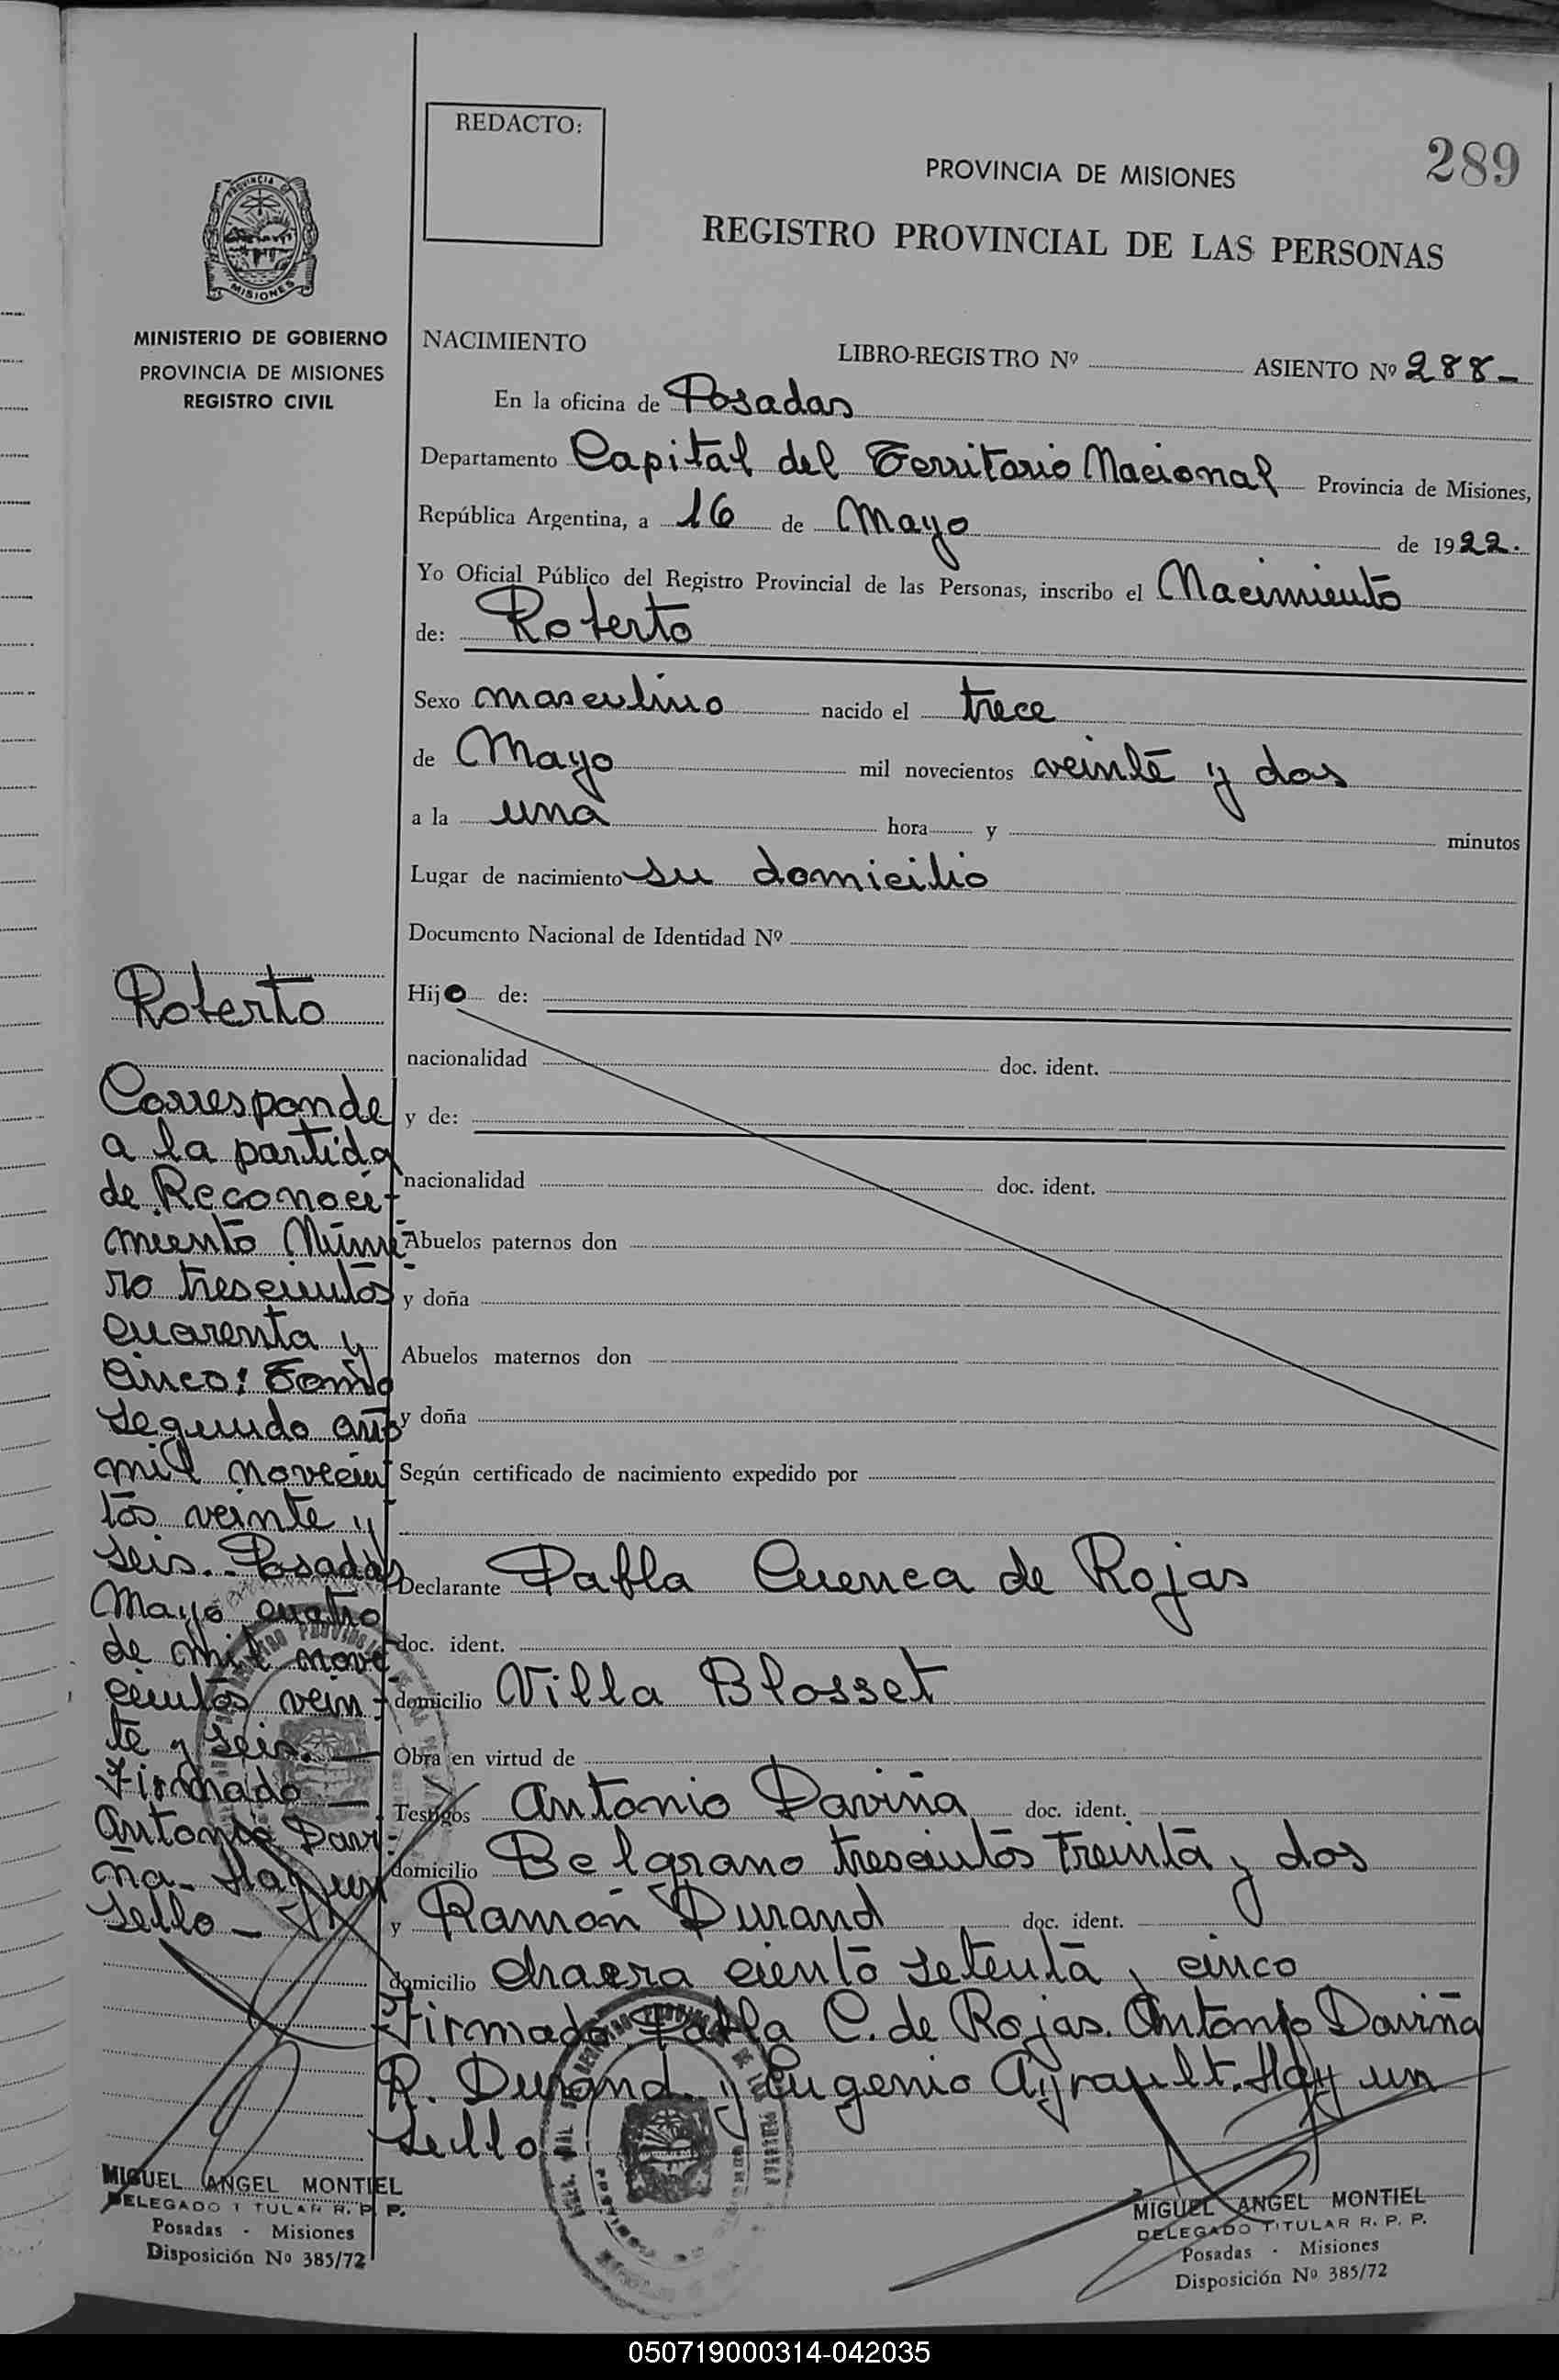 REDACTO:
289
PROVINCIA DE MISIONES
REGISTRO PROVINCIAL DE LAS PERSONAS
PROVINCIA DE
MISIONES
MINISTERIO DE GOBIERNO
PROVINCIA DE MISIONES
REGISTRO CIVIL
NACIMIENTO
LIBRO-REGISTRO Nº ASIENTO Nº 288-
En la oficina de Posadas
Departamento Capital del Territorio Nacional Provincia de Misiones,
República Argentina, a 16 de Mayo de 1922.
Yo Oficial Público del Registro Provincial de las Personas, inscribo el Nacimiento
de: Roberto
Sexo masculino nacido el trece
de Mayo mil novecientos veinte y dos
a la una hora y minutos
Lugar de nacimiento su domicilio
Documento Nacional de Identidad Nº
Hijo de:
nacionalidad doc. ident.
y de:
nacionalidad doc. ident.
Abuelos paternos don
y doña
Abuelos maternos don
y doña
Según certificado de nacimiento expedido por
Declarante Pabla Cuenca de Rojas
doc. ident.
domicilio Villa Blosset
Obra en virtud de
Testigos Antonio Daviña doc. ident.
domicilio Belgrano trescientos treinta y dos
y Ramón Durand doc. ident.
domicilio chacra ciento setenta y cinco
Firmado Pabla C. de Rojas. Antonio Daviña
R. Durand y Eugenio Ayrault. Hay un
sello-
MIGUEL ANGEL MONTIEL
DELEGADO TITULAR R. P. P.
Posadas - Misiones
Disposición Nº 385/72
Roberto
Corresponde
a la partida
de Reconoci-
miento Núme-
ro trescientos
cuarenta y
cinco: Tomo
segundo año
mil novecien-
tos veinte y
seis.- Posadas
Mayo cuatro
de mil nove-
cientos vein-
te y seis.-
Firmado-
Antonio Davi-
ña- Hay un
sello-
MIGUEL ANGEL MONTIEL
DELEGADO TITULAR R. P. P.
Posadas - Misiones
Disposición Nº 385/72
050719000314-042035